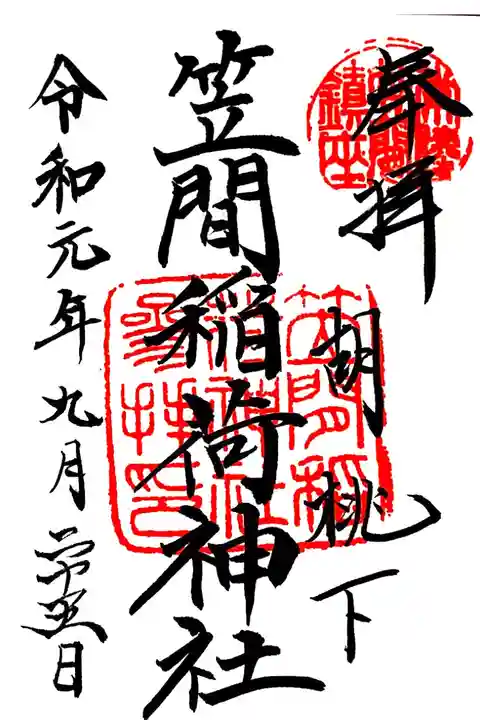 奉拝
胡桃下
笠間稲荷神社
令和元年九月廿五日
常陸
笠間
鎮座
笠間稲
荷神社
参拝印